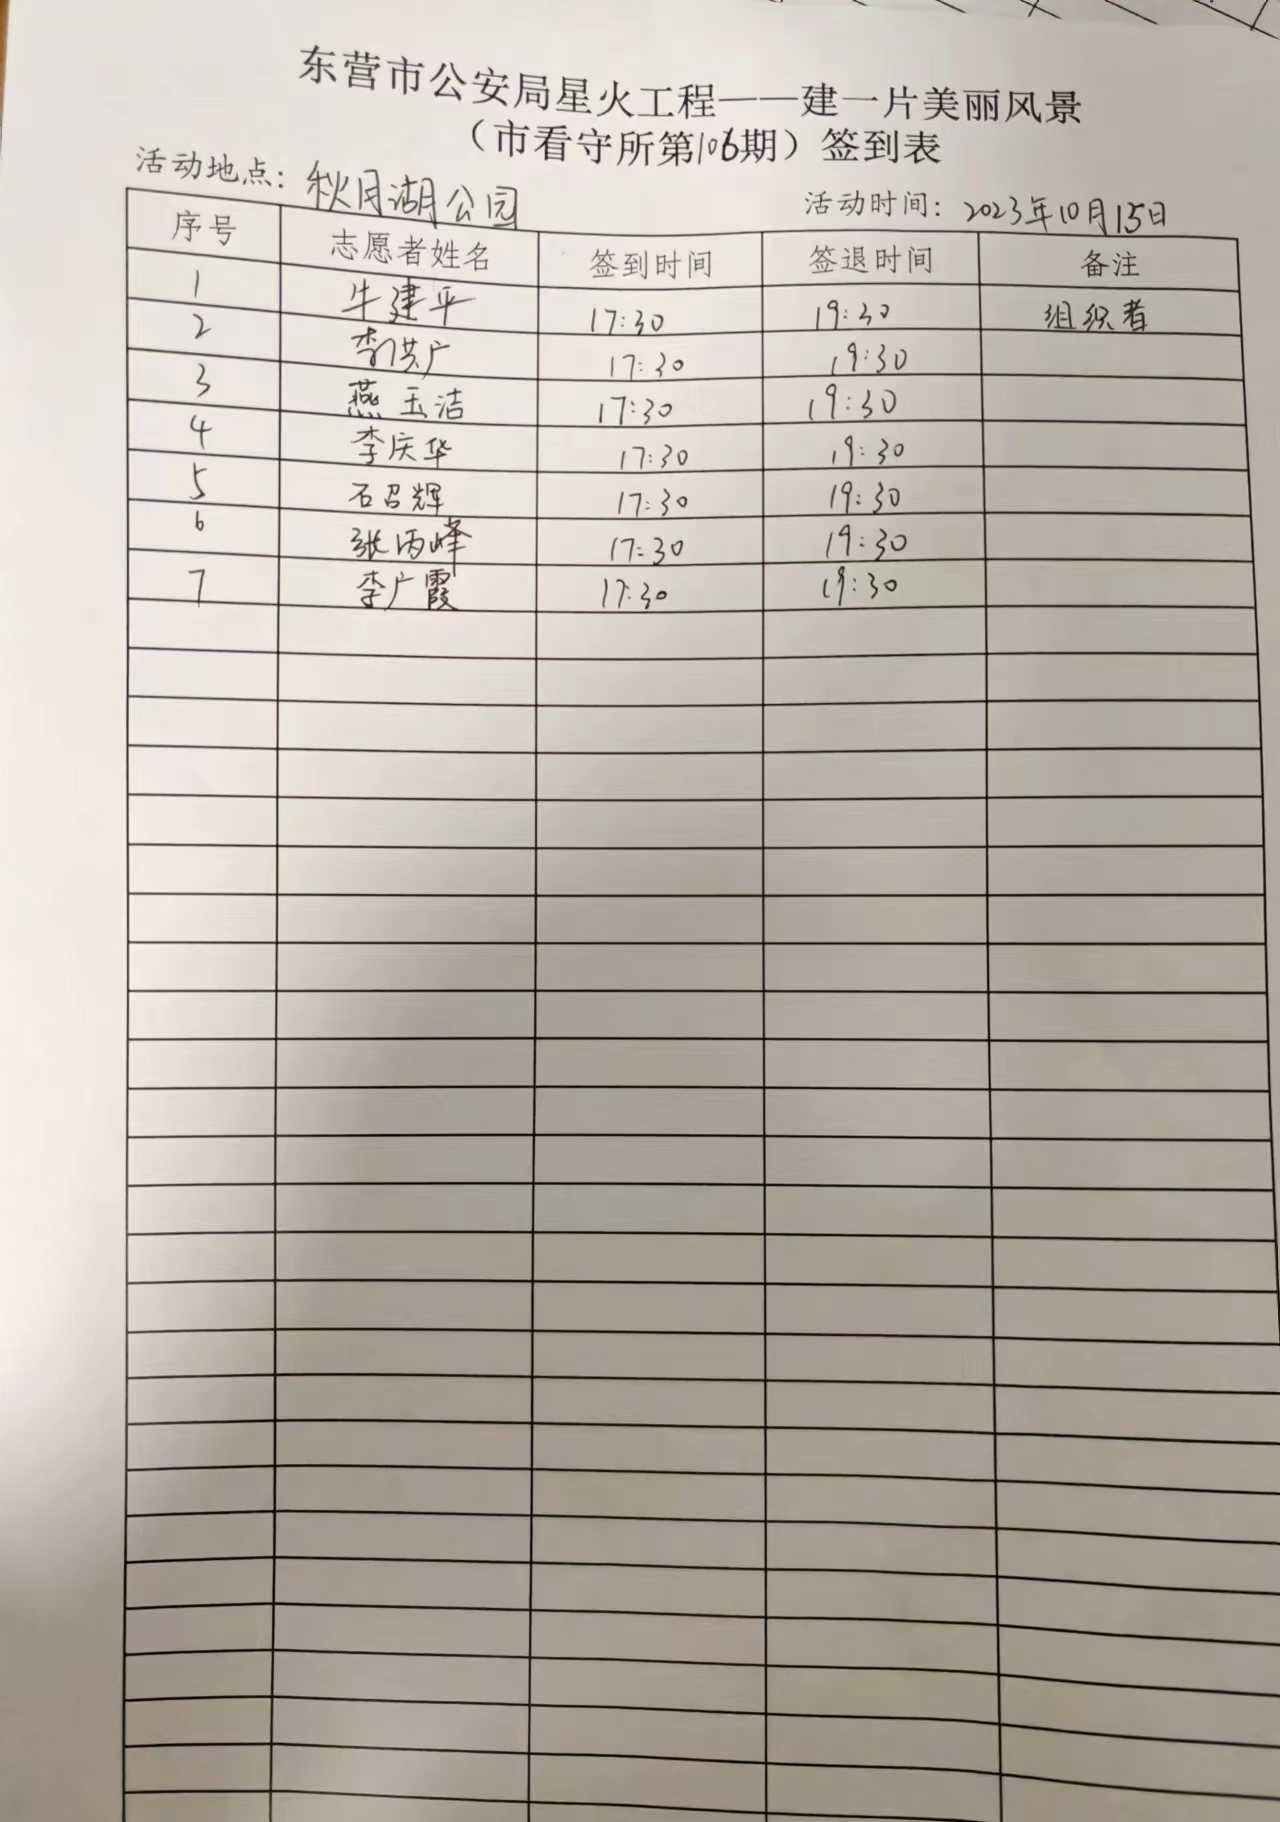 东营市公安局星火工程——建一片美丽风景
（市看守所第106期）签到表
活动地点：秋月湖公园 活动时间：2023年10月15日
序号 志愿者姓名 签到时间 签退时间 备注
1 牛建平 17:30 19:30 组织者
2 李洪广 17:30 19:30
3 燕玉洁 17:30 19:30
4 李庆华 17:30 19:30
5 石召辉 17:30 19:30
6 张丙峰 17:30 19:30
7 李广霞 17:30 19:30